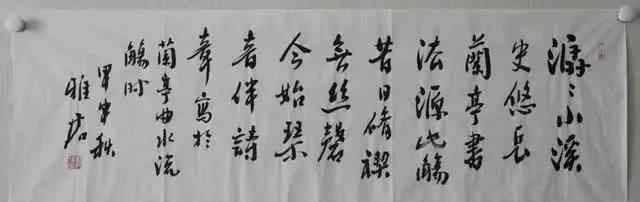 潺々小溪
史悠長
蘭亭書
法源此觴
昔日脩禊
無絲磬
今始琴
音伴詩
章寫於
蘭亭曲水流
觴時
甲午秋
雅